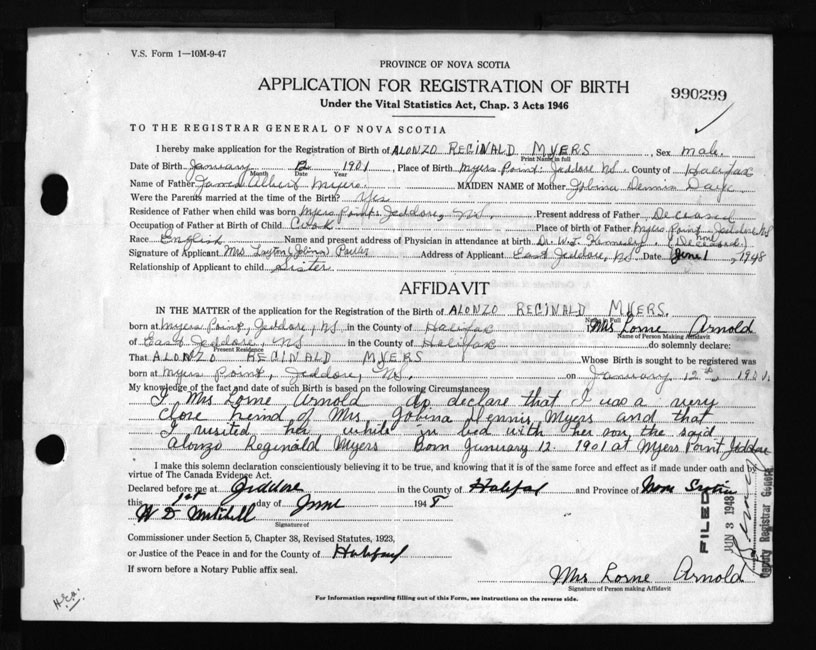 V.S. Form 1—10M-9-47
PROVINCE OF NOVA SCOTIA
APPLICATION FOR REGISTRATION OF BIRTH
990299
Under the Vital Statistics Act, Chap. 3 Acts 1946
TO THE REGISTRAR GENERAL OF NOVA SCOTIA
I hereby make application for the Registration of Birth of ALONZO REGINALD MYERS, Sex male
Print Name in full
Date of Birth January 12 1901, Place of Birth Myers Point: Jeddore NS. County of Halifax
Month Date Year
Name of Father James Albert Myers MAIDEN NAME of Mother Jobina Dennis Daye
Were the Parents married at the time of the Birth? Yes
Residence of Father when child was born Myers Point: Jeddore, NS. Present address of Father Deceased
Occupation of Father at Birth of Child Cook Place of Birth of Father Myers Point Jeddore NS
Race English Name and present address of Physician in attendance at birth Dr. (Deceased)
Signature of Applicant Mrs Layton (Jobina) Address of Applicant East Jeddore, NS. Date June 1, 1948
Relationship of Applicant to child Sister
AFFIDAVIT
IN THE MATTER of the application for the Registration of the Birth of ALONZO REGINALD MYERS.
Name in Full
born at Myers Point, Jeddore, NS in the County of Halifax I, Mrs Lorne Arnold
Name of Person Making Affidavit
of East Jeddore, NS in the County of Halifax do solemnly declare:
Present Residence
That ALONZO REGINALD MYERS Whose Birth is sought to be registered was
born at Myers Point, Jeddore, NS. on January 12th 1901.
My knowledge of the fact and date of such Birth is based on the following Circumstances
I Mrs Lorne Arnold do declare that I was a very
close freind of Mrs Jobina Dennis Myers and that
I visited her while in bed with her son, the said
Alonzo Reginald Myers Born January 12 1901 at Myers Point Jeddore
I make this solemn declaration conscientiously believing it to be true, and knowing that it is of the same force and effect as if made under oath and by
virtue of The Canada Evidence Act.
Declared before me at Jeddore in the County of Halifax and Province of Nova Scotia
this 1st day of June 1948
W D Mitchell
Signature of
Commissioner under Section 5, Chapter 38, Revised Statutes, 1923,
or Justice of the Peace in and for the County of Halifax
If sworn before a Notary Public affix seal.
FILED
JUN 3 1948
Deputy Registrar General
Mrs Lorne Arnold
Signature of Person making Affidavit
For Information regarding filling out of this Form, see instructions on the reverse side.